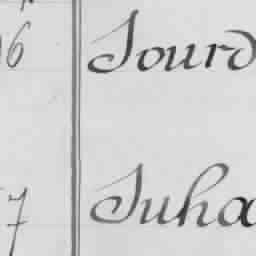 6 Jourd
7 Juha